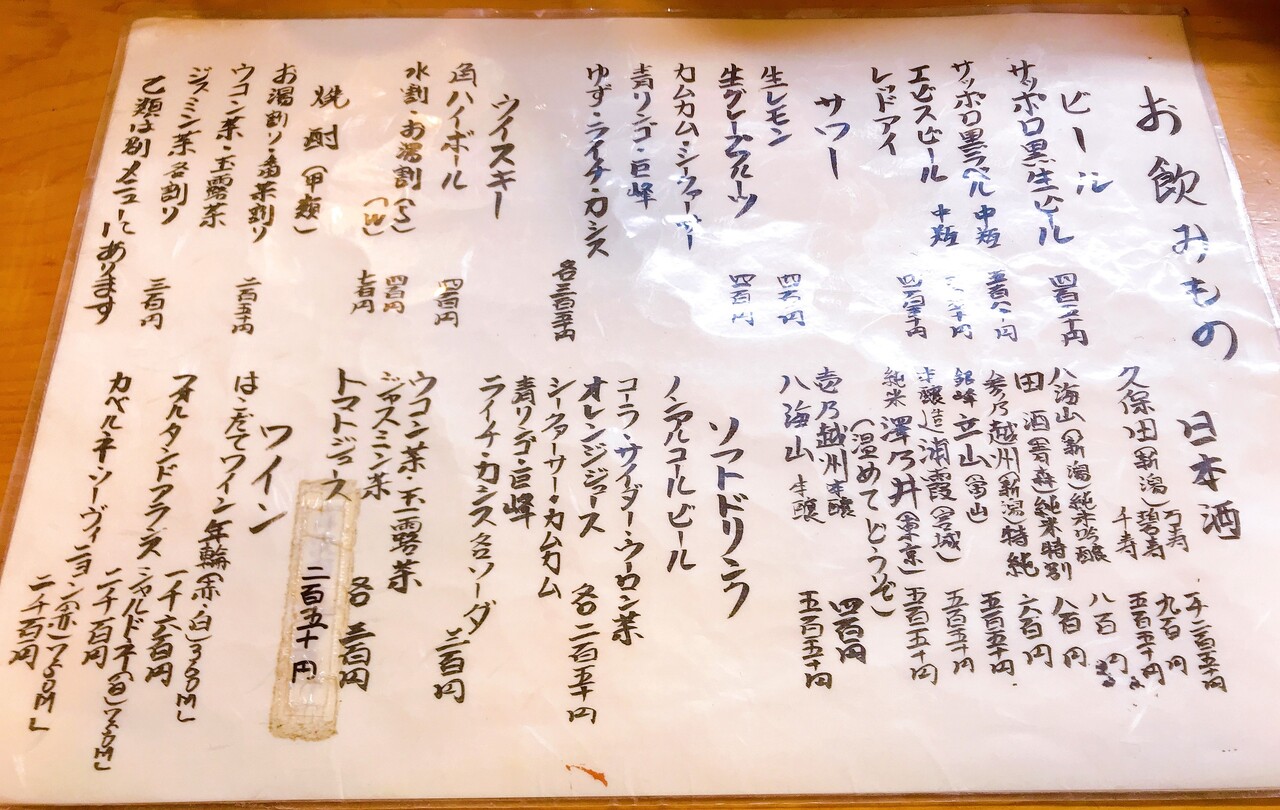 お飲みもの
ビール
サッポロ黒生ビール 四百五十円
サッポロ黒ラベル 中瓶
エビスビール 中瓶
レッドアイ
サワー
生レモン 四百円
生グレープフルーツ 四百円
カムカム・シークァーサー
青リンゴ・巨峰
ゆず・ライチ・カシス 各三百五十円
ウイスキー
角ハイボール 四百円
水割・お湯割(S) 四百円
(W) 七百円
焼酎(甲類)
お湯割り・烏茶割り 二百五十円
ウコン茶・玉露茶
ジャスミン茶各割り 三百円
乙類は別メニューにあります
日本酒
久保田(新潟) 万寿
碧寿
千寿
八海山(新潟)純米吟醸
田酒(青森)純米特別
参乃越州(新潟)特純
銀峰立山(富山)
本醸造浦霞(宮城)
純米澤乃井(東京)
(温めてどうぞ)
壱乃越州本醸 四百円
八海山本醸 五百五十円
ソフトドリンク
ノンアルコールビール
コーラ・サイダー・ウーロン茶
オレンジジュース 各二百五十円
シークァーサー・カムカム
青リンゴ・巨峰
ライチ・カシス各ソーダ 三百円
ウコン茶・玉露茶
ジャスミン茶 各三百円
トマトジュース 二百五十円
ワイン
はこだてワイン年輪(赤・白)360ML
千六百円
フォルタンドフランス シャルドネ(白)750ML
二千百円
カベルネ・ソーヴィニヨン(赤)750ML
二千百円